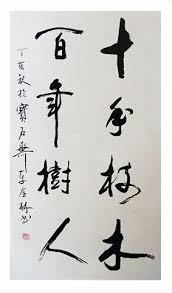 十年树木
百年樹人
丁亥秋於寶石